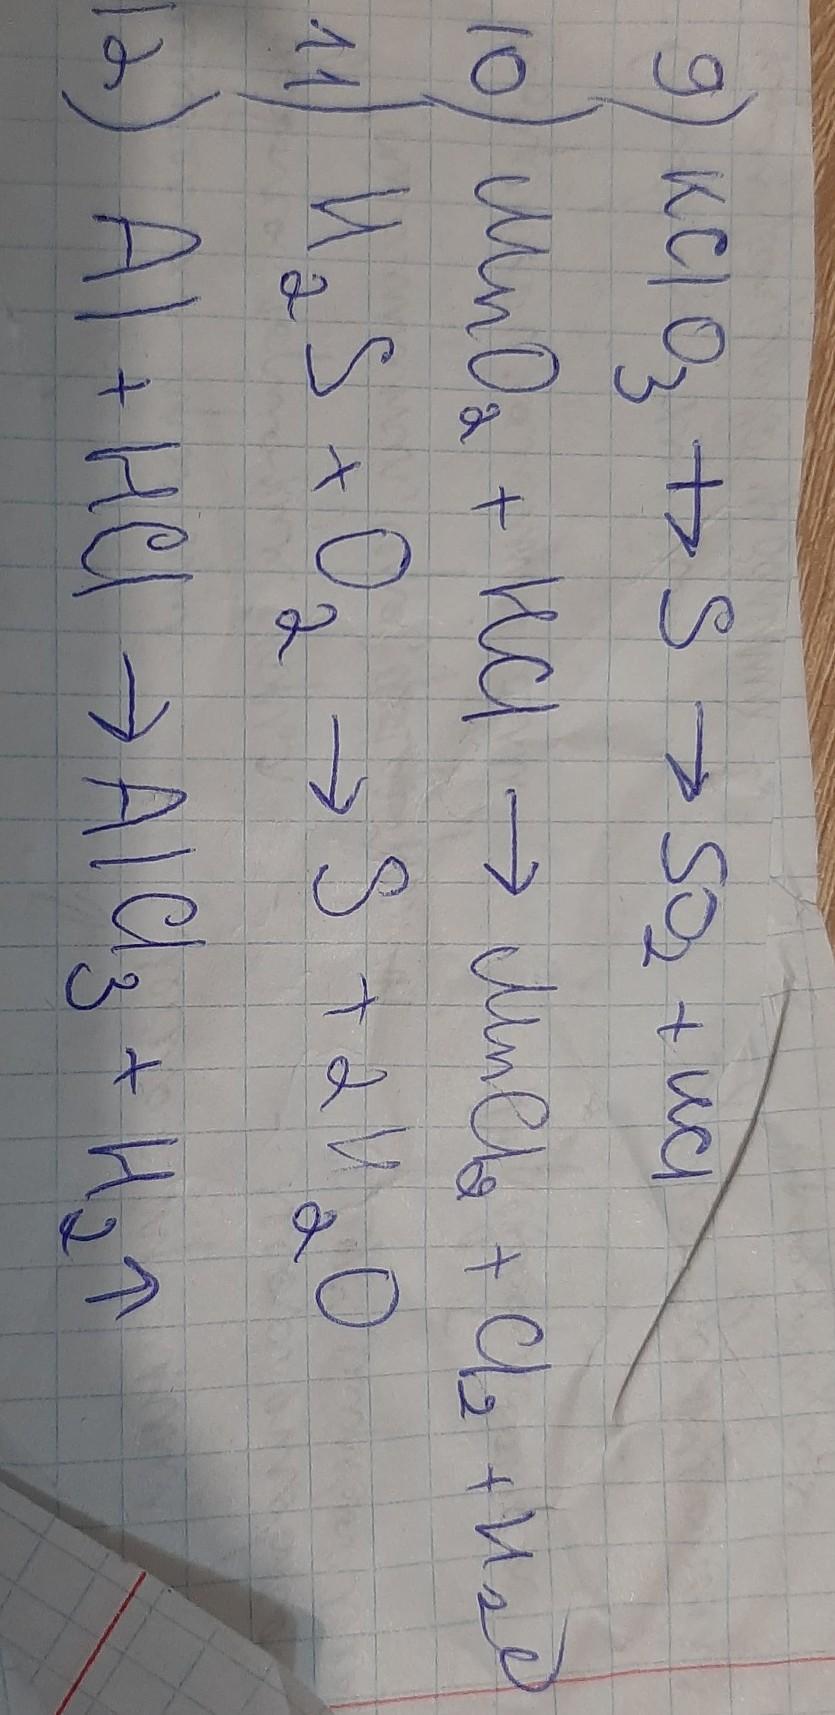 9) KClO₃ + → S → SO₂ + KCl
10) MnO₂ + HCl → MnCl₂ + Cl₂ + H₂O
11) H₂S + O₂ → S + 2H₂O
12) Al + HCl → AlCl₃ + H₂↑